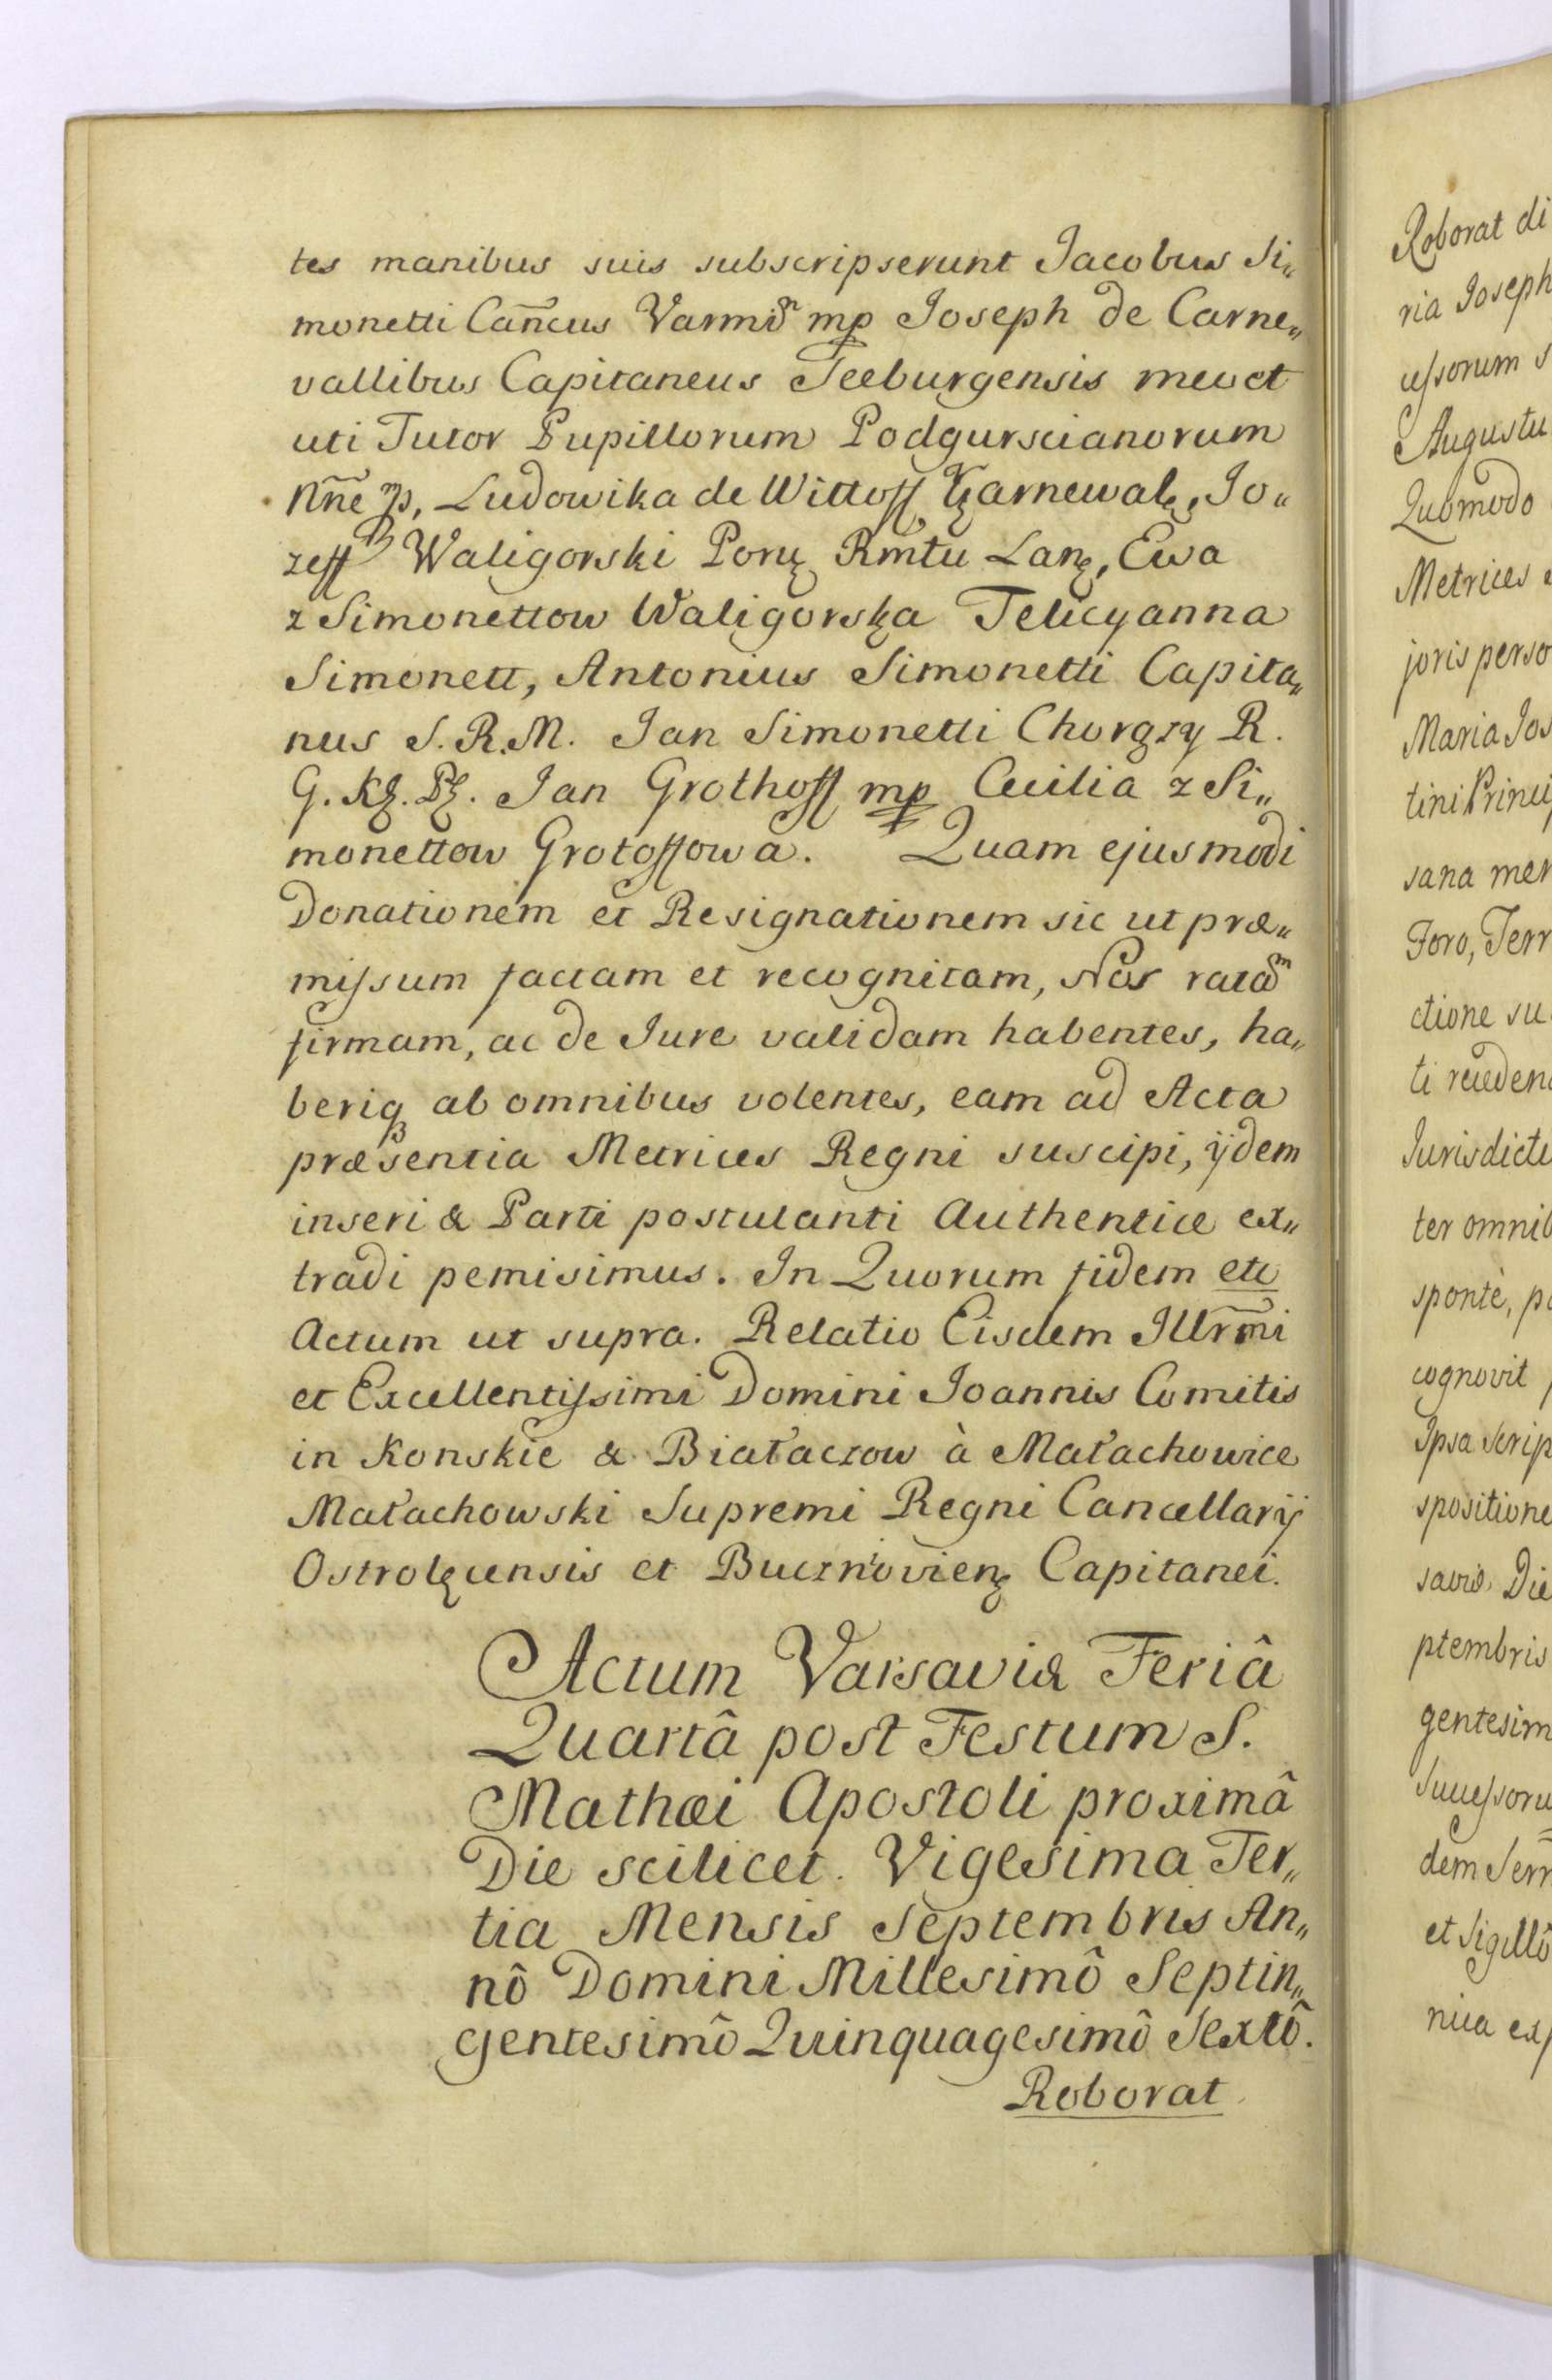 tes manibus suis subscripserunt Jacobus Si„
monetti Cañcus Varmien mp Joseph de Carne„
vallibus Capitaneus Seeburgensis meo et
uti Tutor Pupillorum Podgurscianorum
Nñe mp, Ludowika de Wittoff Czarnewalę, Jo„
zeff Waligorski Porucz Rmtu Lanę, Ewa
z Simonettow Waligorska Felicyanna
Simonett, Antonius Simonetti Capita„
nus S. R. M. Jan Simonetti Chorąży R.
G. Kę. Pę. Jan Grothoff mp Cecilia z Si„
monettow Grotoffowa. Quam ejusmodi
Donationem et Resignationem sic ut præ„
missum factam et recognitam, Nos ratam
firmam, ac de Jure validam habentes, ha„
beriq ab omnibus volentes, eam ad Acta
præsentia Metrices Regni suscipi, ijdem
inseri & Parti postulanti Authentice ex„
tradi pemisimus. In Quorum fidem etc
Actum ut supra. Relatio Eisdem Illrmi
et Excellentissimi Domini Joannis Comitis
in Konskie & Białaczow à Małachowice
Małachowski Supremi Regni Cancellarij
Ostrolęcensis et Bucznovienę Capitanei.
Actum Varsaviæ Feriâ
Quartâ post Festum S.
Mathæi Apostoli proximâ
Die scilicet. Vigesima Ter„
tia Mensis Septembris An„
nô Domini Millesimô Septin„
gentesimô Quinquagesimô Sextô.
Roborat
Roborat di
ria Joseph
cessorum s
Augustu
Quomodo
Metrices
joris perso
Maria Jos
tini Princip
sana men
Foro, Terr
ctione su
ti recedend
Jurisdicti
ter omnib
spontè, pa
cognovit
Ipsa scrip
spositione
saviæ Die
ptembris
gentesim
Successoru
dem Serr
et Sigillô
nica exp